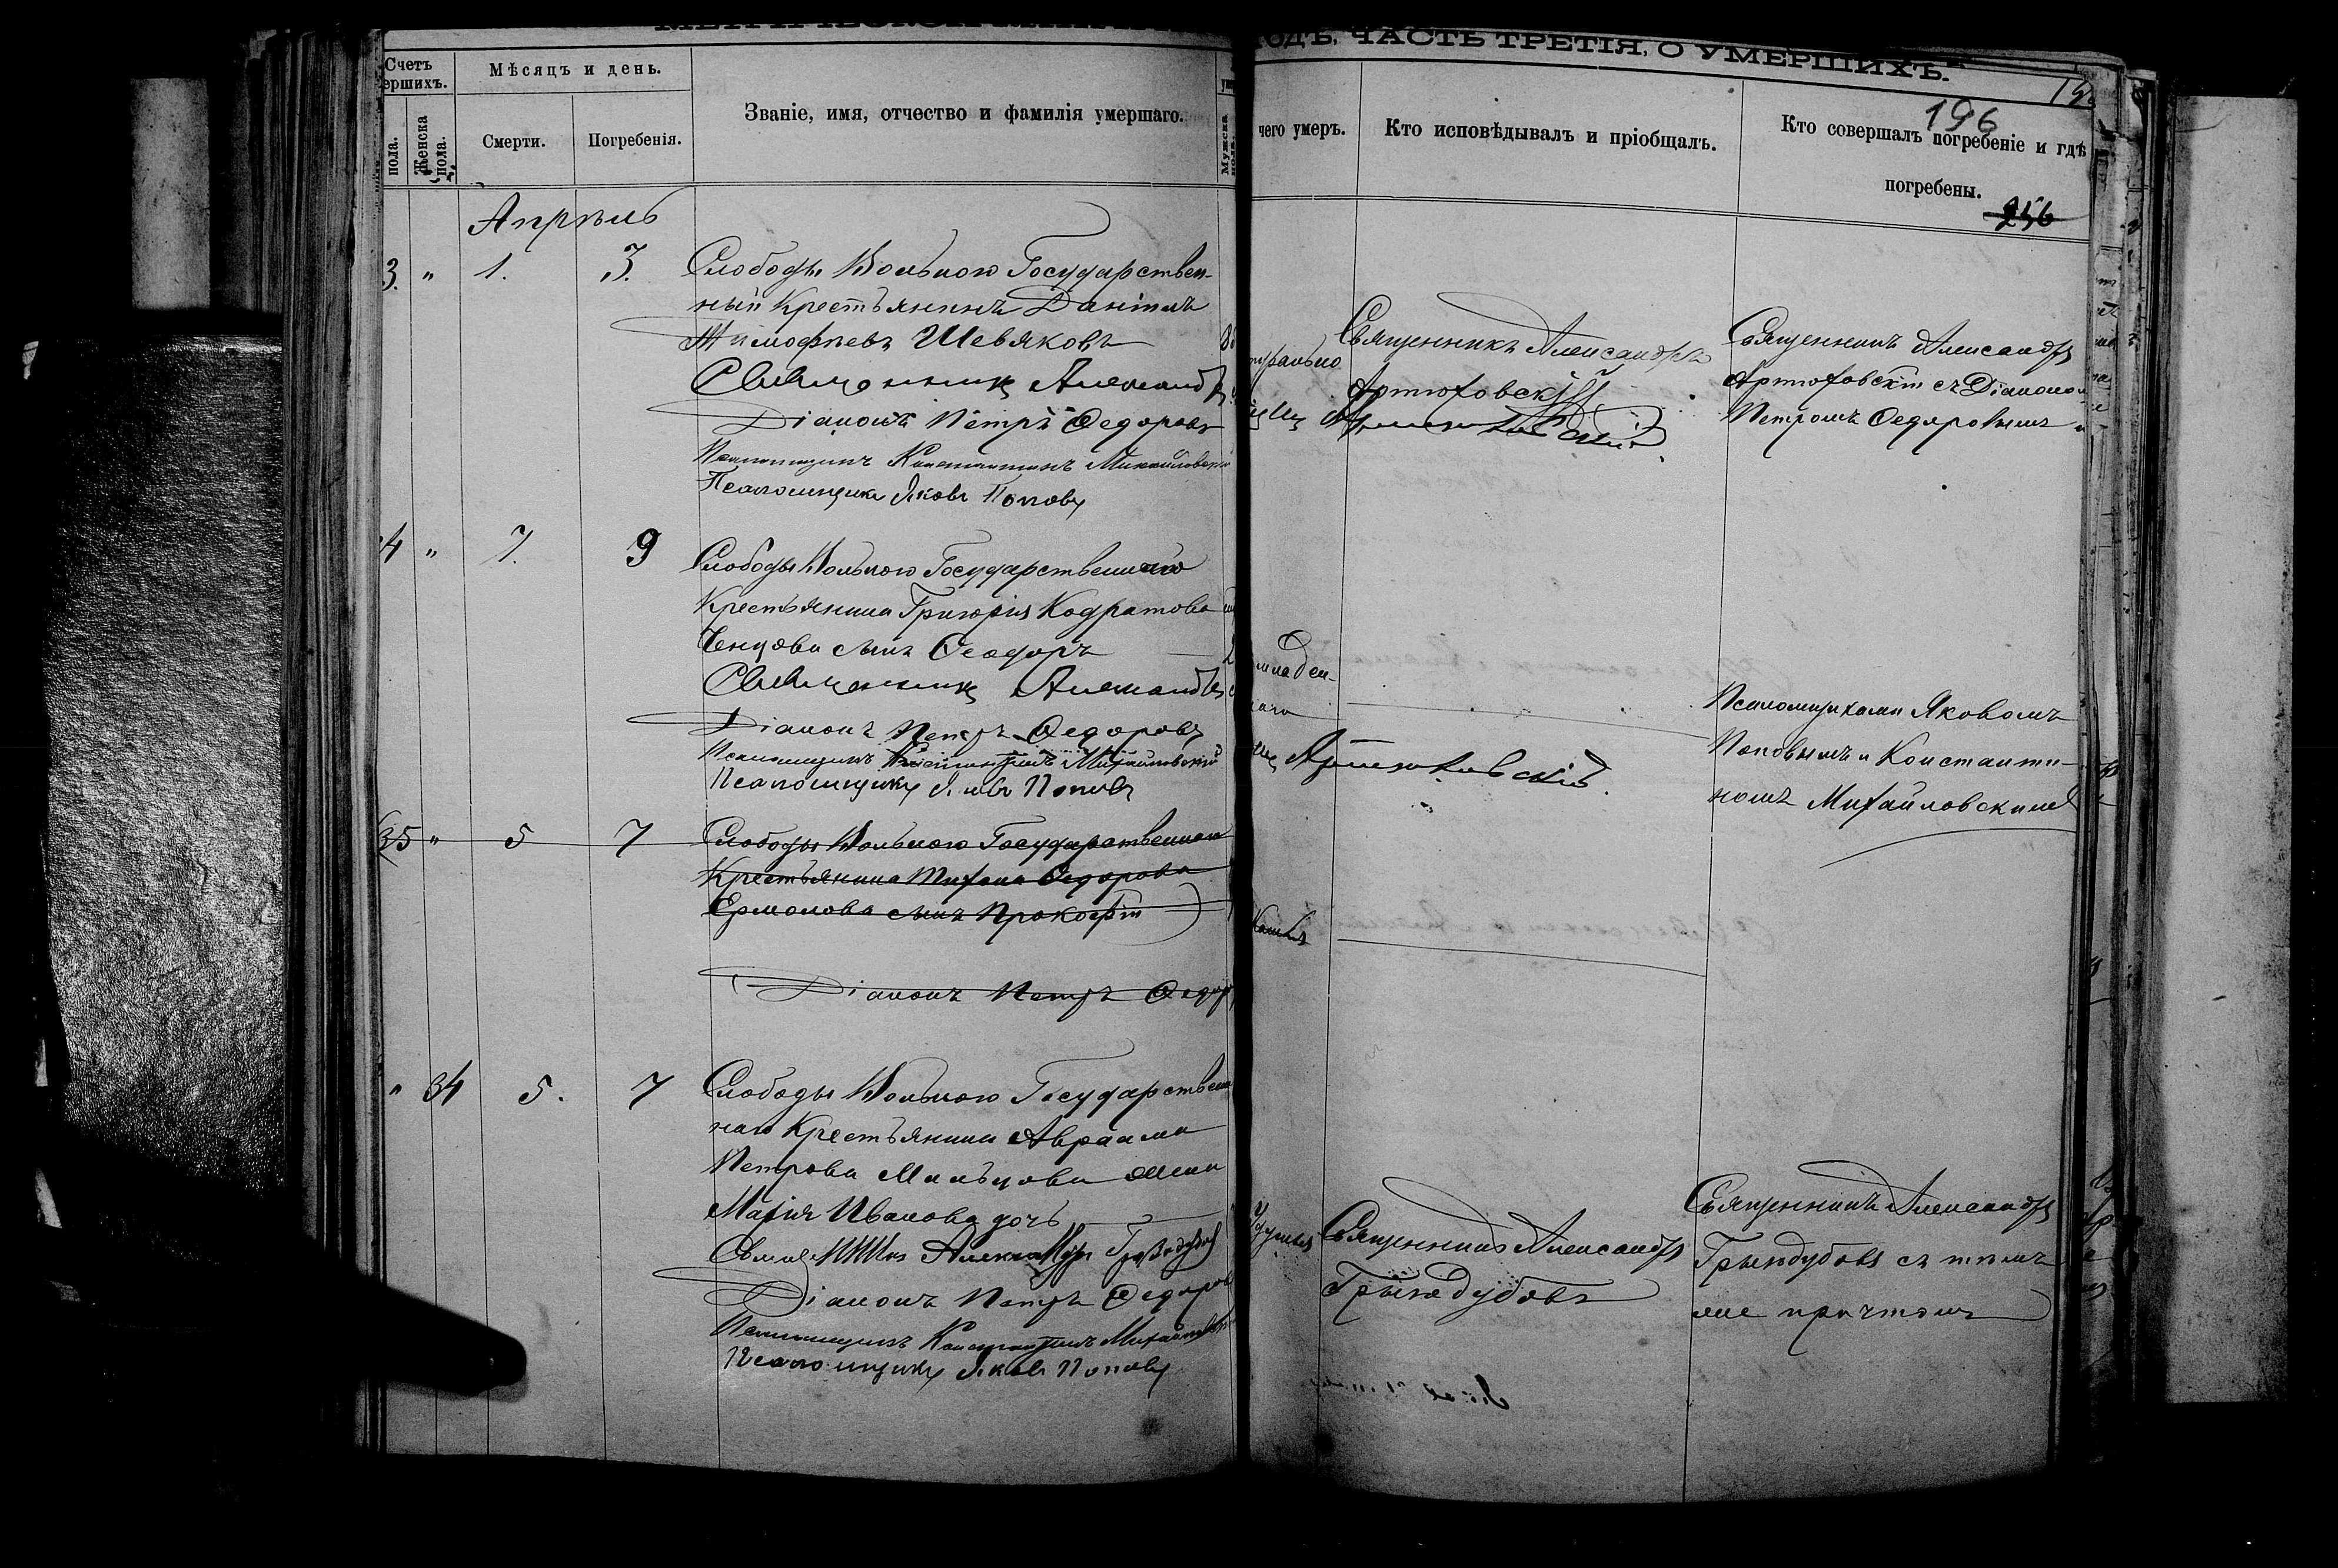 ОДЪ, ЧАСТЬ ТРЕТІЯ, О УМЕРШИХЪ.
Счетъ
ершихъ.
Мѣсяцъ и день.
пола.
Женска
пола.
Смерти.
Погребенія.
Званіе, имя, отчество и фамилія умершаго.
Мужска
пола.
чего умеръ.
Кто исповѣдывалъ и пріобщалъ.
Кто совершалъ погребеніе и гдѣ
погребены.
196
256
Апрѣль
3. " 1. 3.
Слободы Вольного Государствен-
ный Крестьянинъ Даніилъ
Тимофѣевъ Шевяковъ
Священникъ Александръ
Діаконъ Петръ Ѳедоровъ
Псаломщикъ Константинъ Михайловскій
Псаломщикъ Яковъ Поповъ
Священникъ Александръ
Артюховскій
Артюховскій
Священникъ Александръ
Артюховскій съ Діакономъ
Петромъ Ѳедоровымъ
4 " 7. 9
Слободы Вольного Государственнаго
Крестьянина Григорія Кодратова
Ченцова сынъ Ѳеодоръ
Священникъ Александръ
Діаконъ Петръ Ѳедоровъ
Псаломщикъ Константинъ Михайловскій
Псаломщикъ Яковъ Поповъ
младен-
Артюховскій
Псаломщиками Яковомъ
Поповымъ и Константи-
номъ Михайловскимъ
35 " 5 7
Слободы Вольного Государственнаго
Крестьянина Тихона Ѳедорова
Ермолова сынъ Прокофій
Діаконъ Петръ Ѳедор
" 34 5. 7
Слободы Вольного Государствен
наго Крестьянина Авраама
Петрова Мальцова жена
Марія Иванова дочь
Священникъ Александръ
Діаконъ Петръ Ѳедоров
Псаломщикъ Константинъ Михайловскій
Псаломщикъ Яковъ Поповъ
Священникъ Александръ
Грызодубовъ
Священникъ Александръ
Грызодубовъ съ тѣмъ
же причтомъ